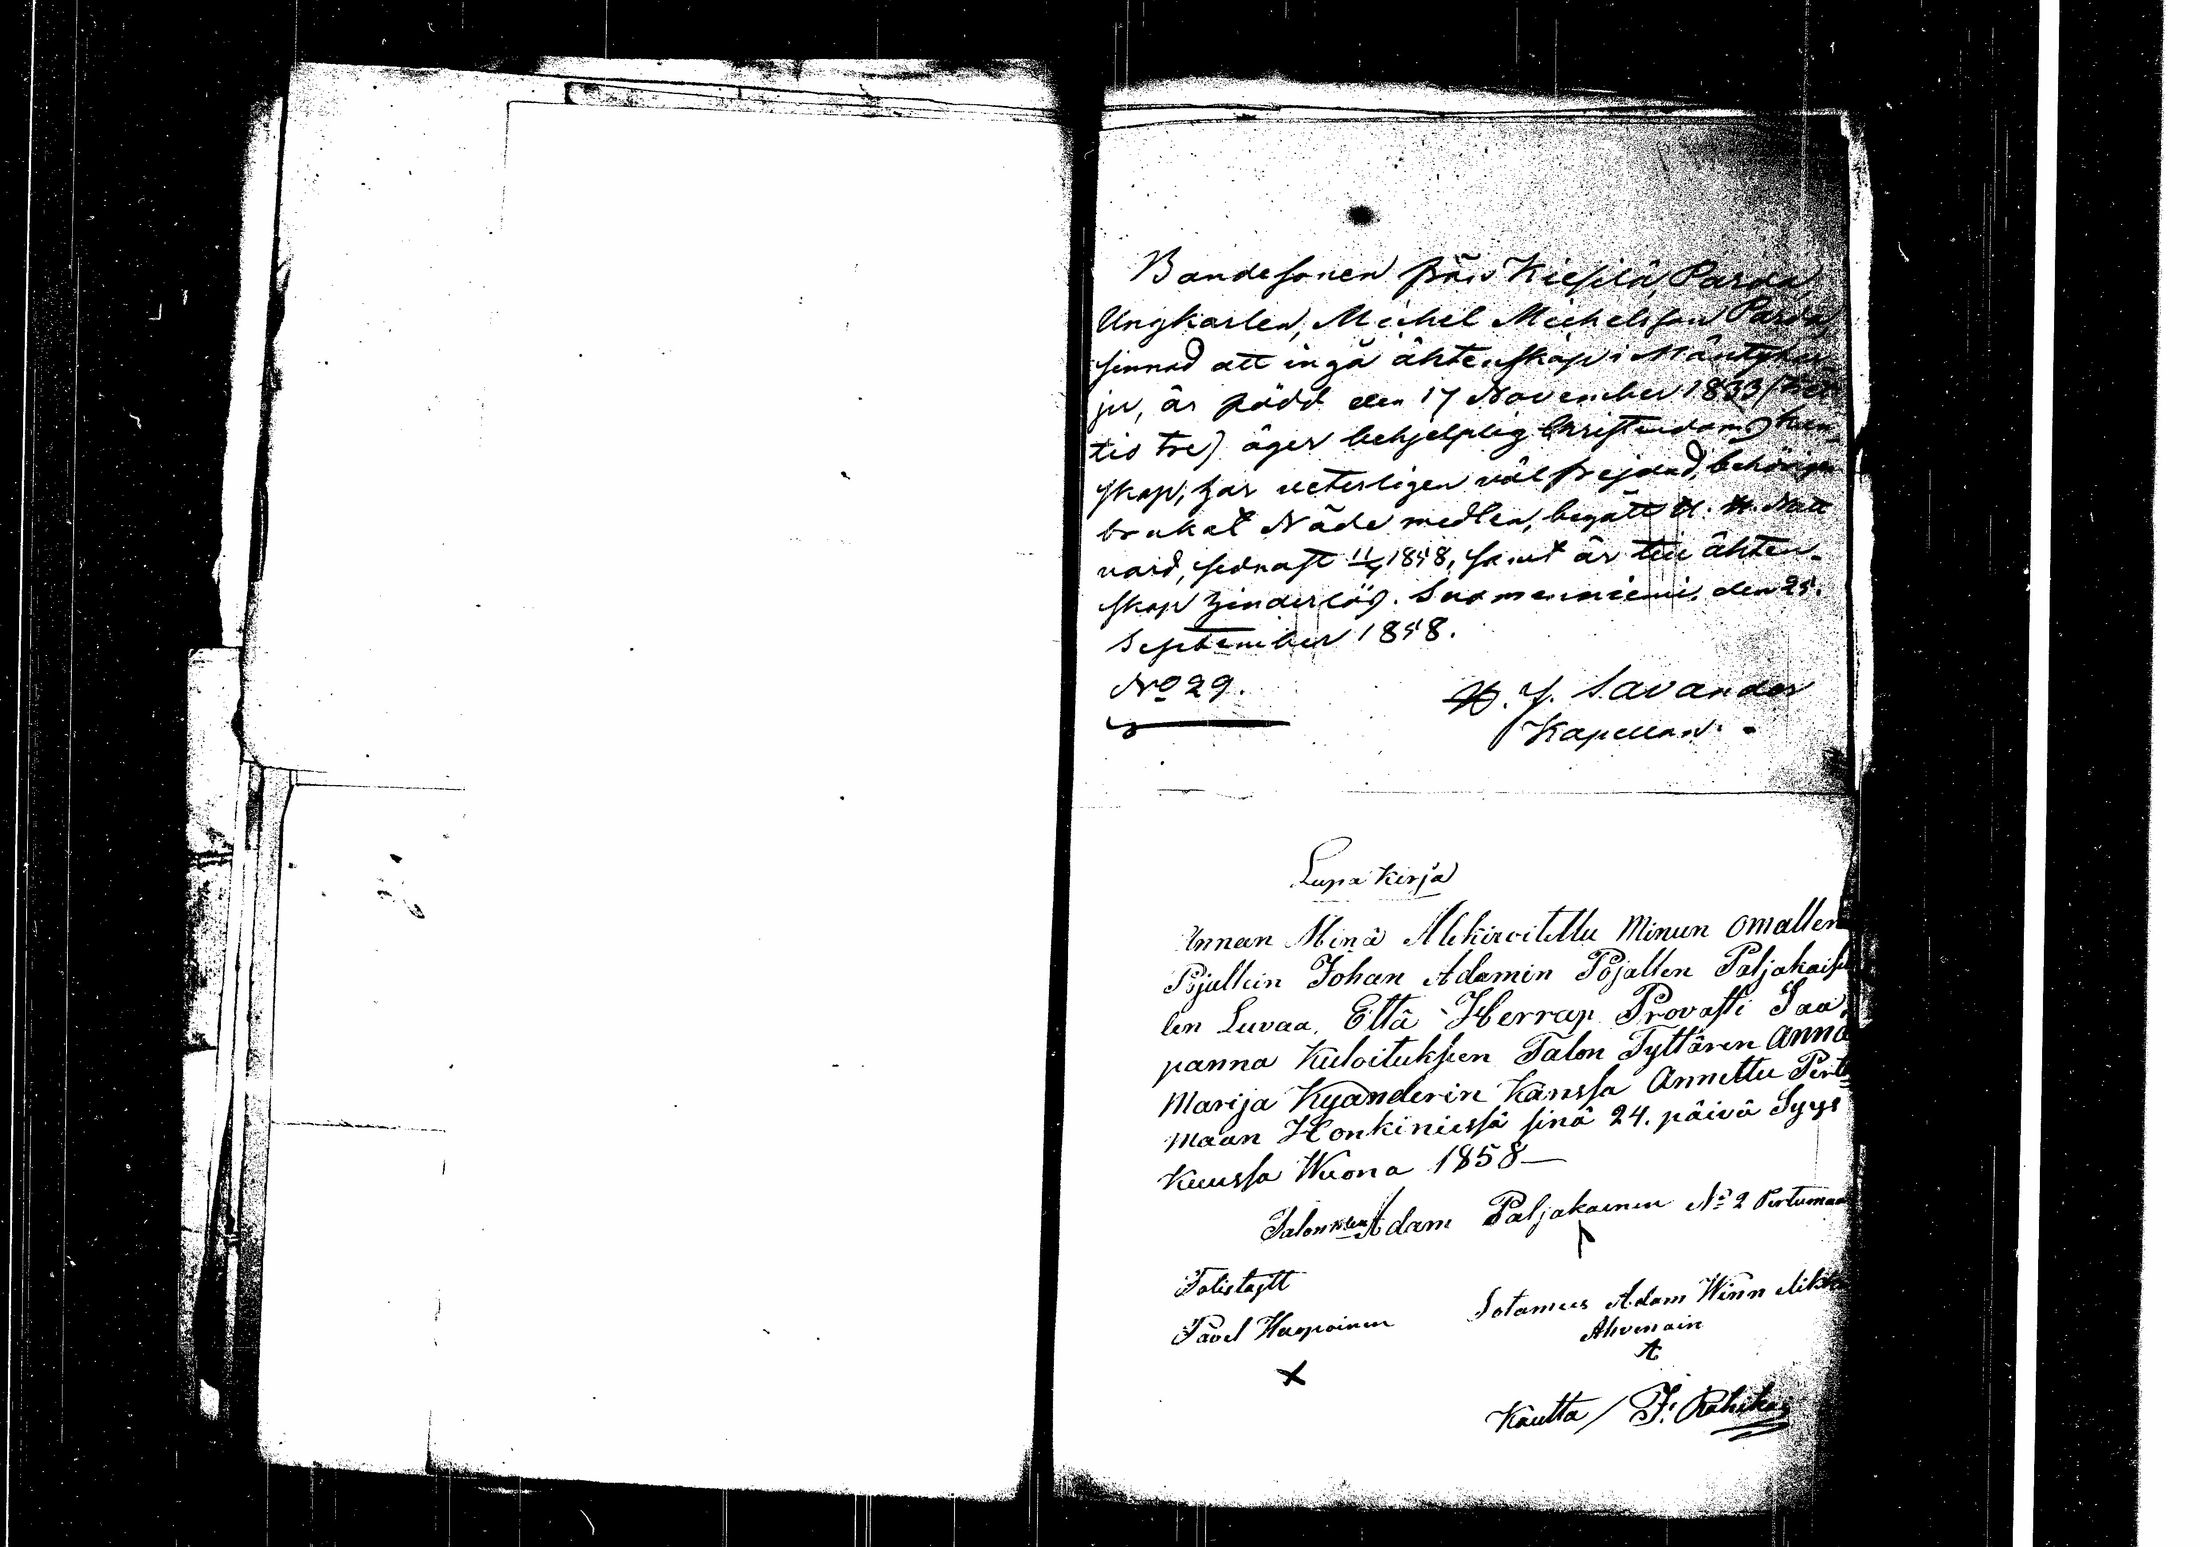 Bondesonen från Kiesilä, Parda,
Ungkarlen, Michel Michelsson Parda,
sinnad att ingå ähtenskap i Mäntyhar-
ju, är född den 17 November 1833 (tret-
tio tre) äger behjelplig Christendoms kun-
skap, har veterligen väl frejdad, behörigen
brukat Nåde medlen, begått H. H. Natt
vard, sednast 1858, samt är till ähten-
skap hinderlös. Suomenniemi, den 25.
September 1858.
No 29. H. J. Savander
Kapellan.
Lupa Kirja
Annan Minä Allekirioitettu Minun omallen
Pojallein Johan Adamin Pojallen Paljakaisel
len Luvaa, Että Herran Provasti Saa
panna Kuloituksen Talon Tyttären Anna
Marija Kyanderin Kanssa Annettu Pertu
maan Honkiniessä sinä 24. päivä Syys
Kuussa Wuona 1858—
Adam Paljakainen No 2 Pertumaa
Totistajtt
Pavel Haapoinen Sotamies Adam Winn
Ahvenain
X A
Kautta / J: